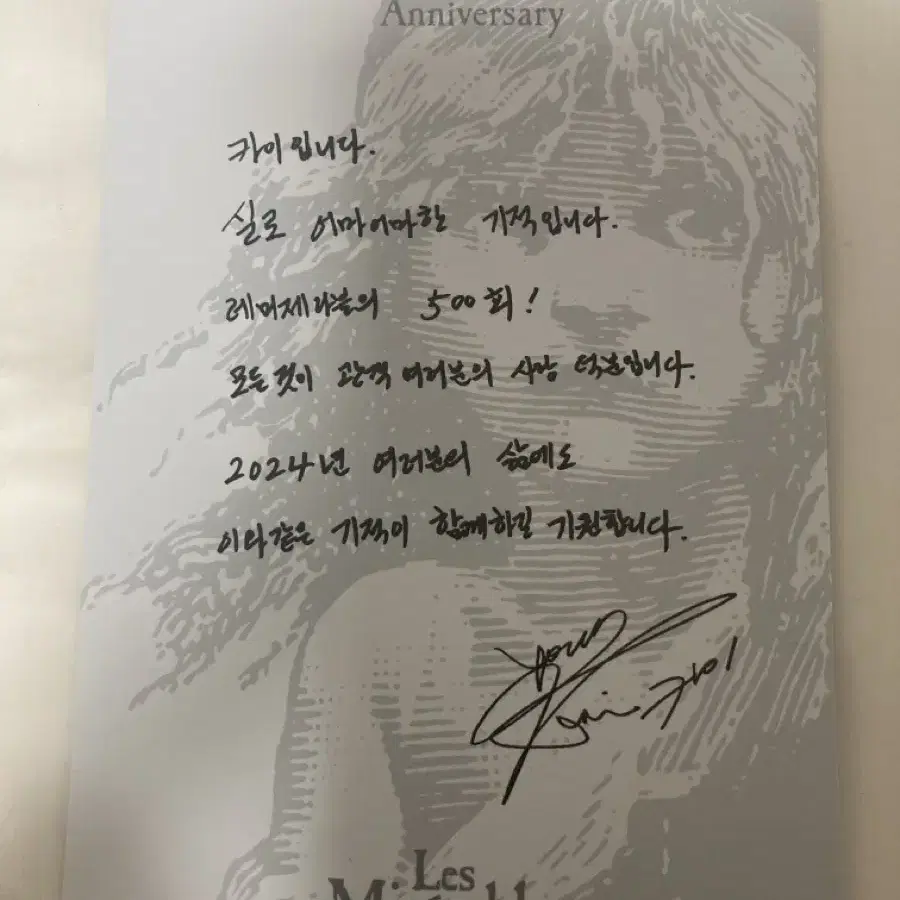 Anniversary
카이입니다.
실로 어마어마한 기적입니다.
레미제라블의 500회!
모든 것이 관객 여러분의 사랑 덕분입니다.
2024년 여러분의 삶에도
이와같은 기적이 함께하길 기원합니다.
Kai 카이
Les